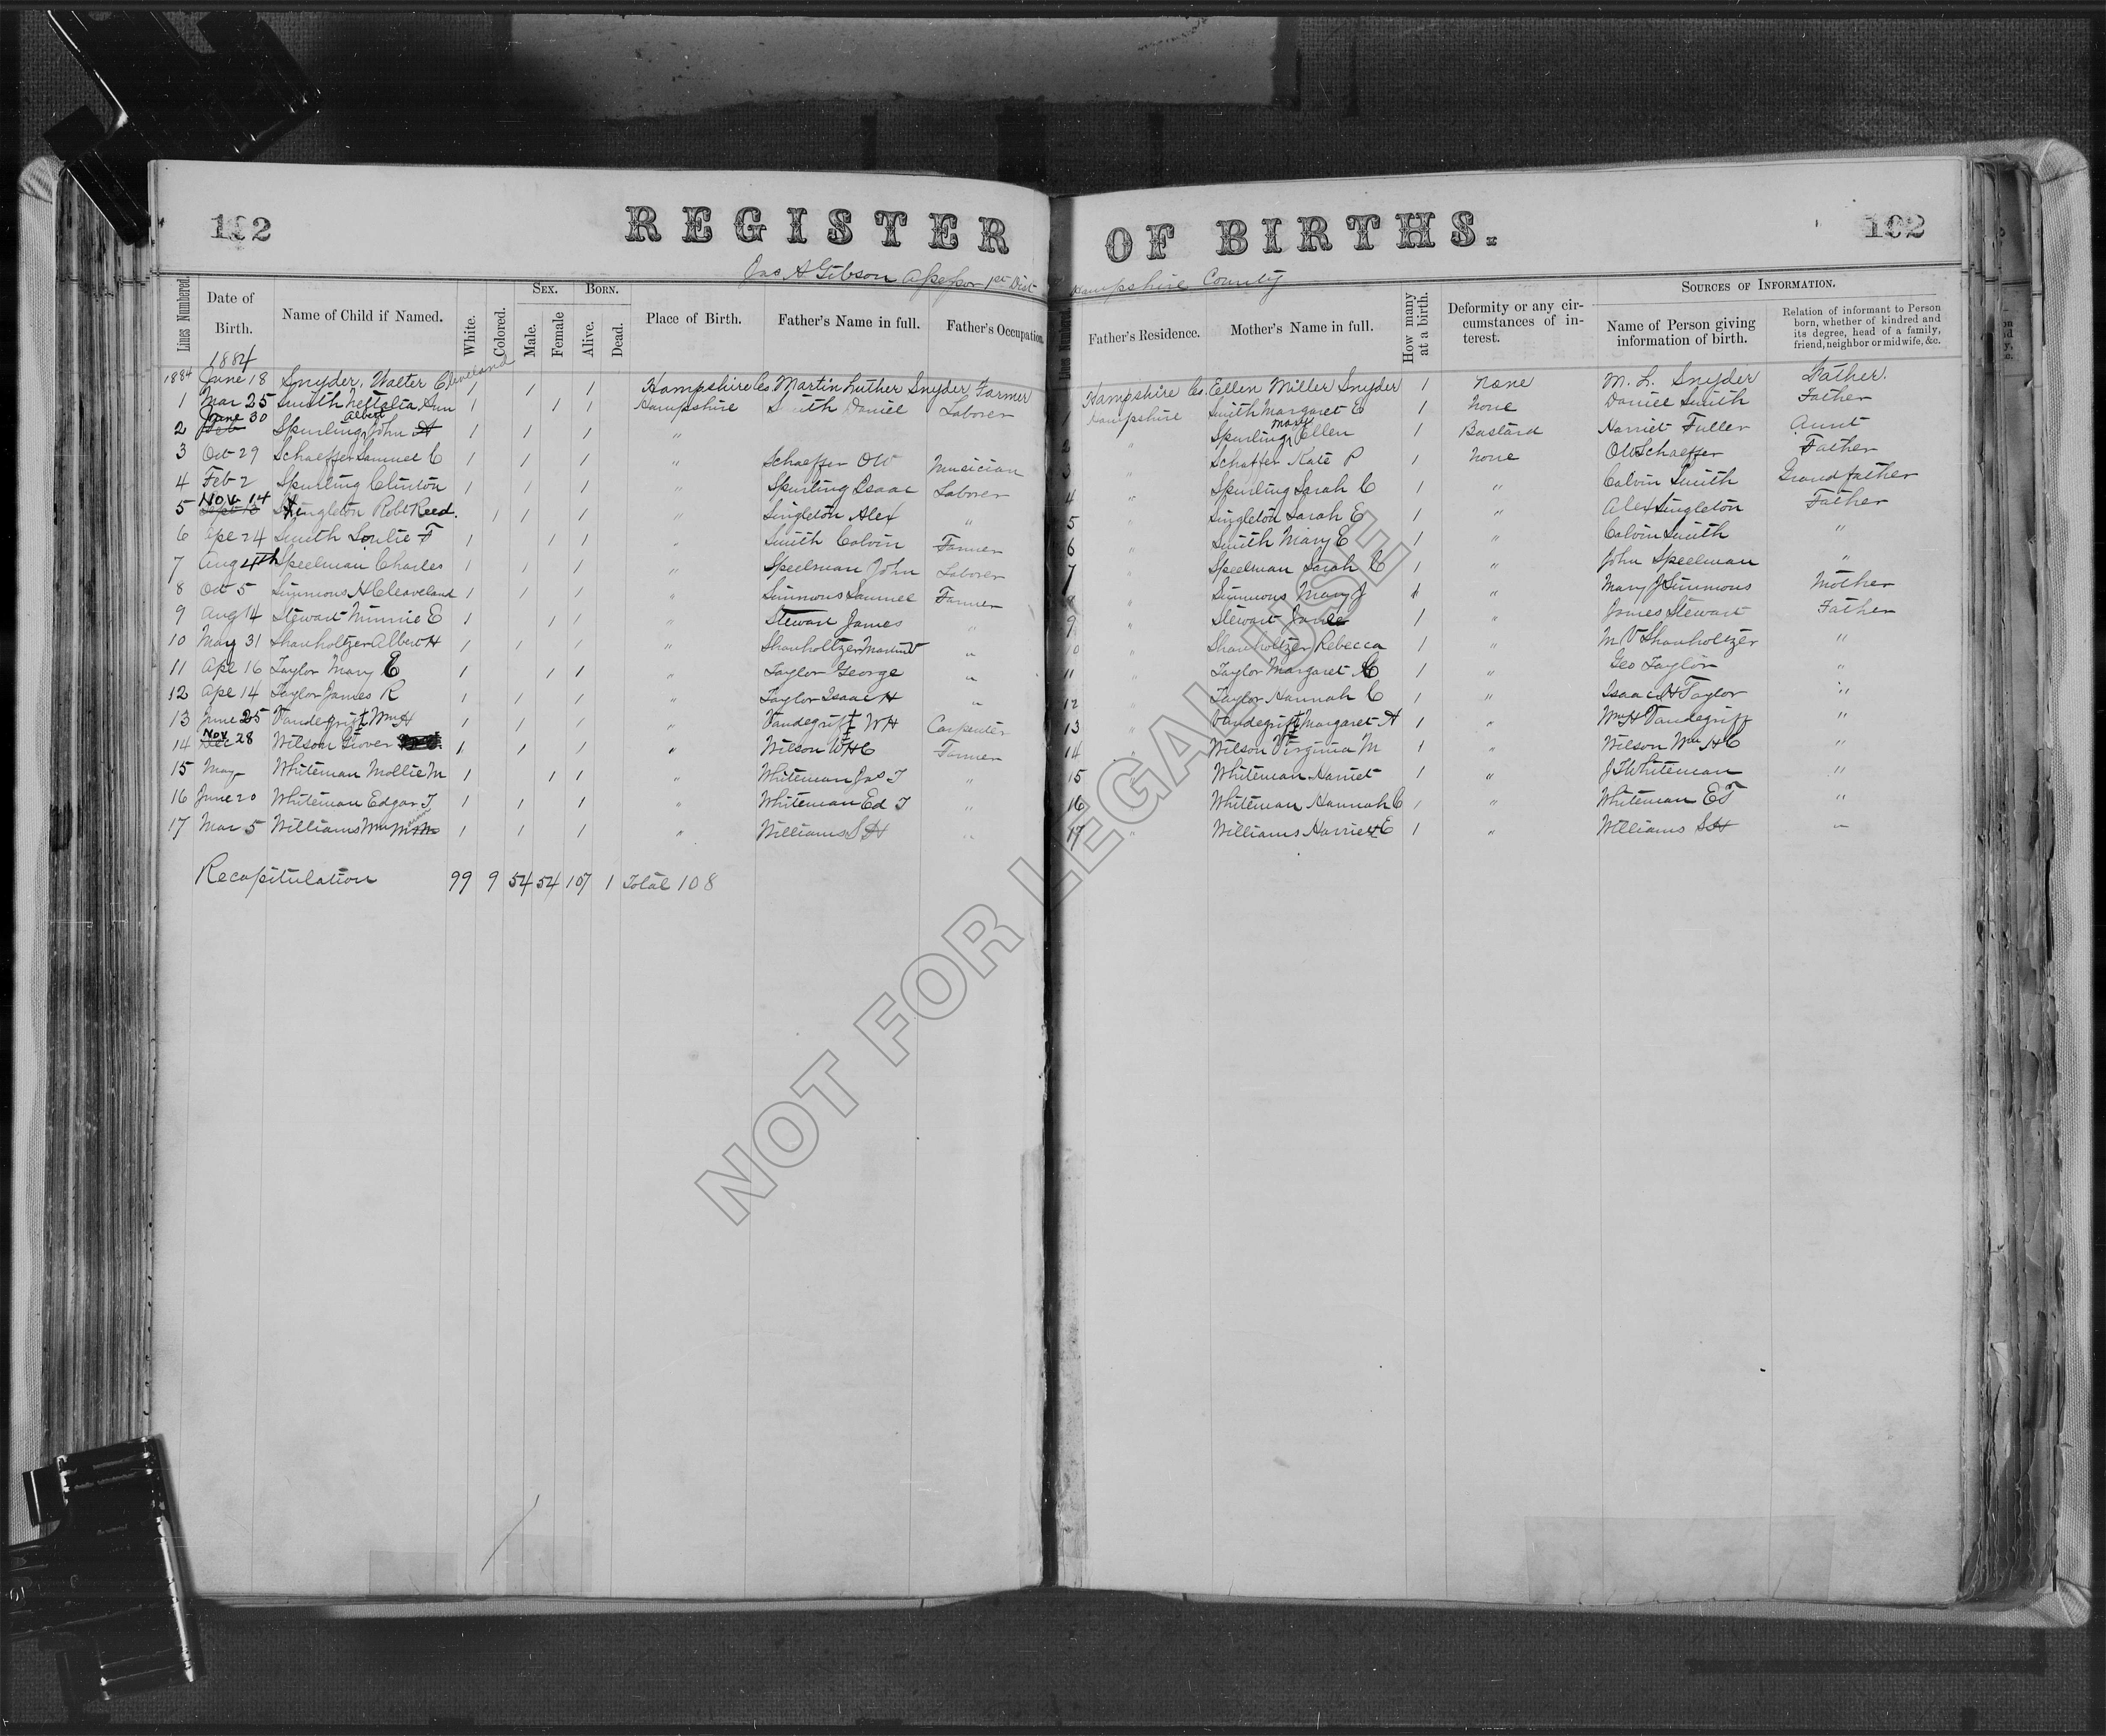 102 REGISTER OF BIRTHS. 102
Jas A Gibson Assessor 1st Dist Hampshire County
Lines Numbered. Date of Birth. Name of Child if Named. White. Colored. Sex. Male. Female Born. Alive. Dead. Place of Birth. Father's Name in full. Father's Occupation. Lines Numbered. Father's Residence. Mother's Name in full. How many at a birth. Deformity or any circumstances of interest. Sources of Information. Name of Person giving information of birth. Relation of informant to Person born, whether of kindred and its degree, head of a family, friend, neighbor or midwife, &c.
1884
1884 June 18 Snyder, Walter Cleveland 1 1 1 Hampshire Co. Martin Luther Snyder Farmer Hampshire Co. Ellen Miller Snyder 1 None M. L. Snyder Father.
1 Mar 25 Smith Ann 1 1 1 Hampshire Smith Daniel Laborer 1 Hampshire Smith Margaret E 1 None Daniel Smith Father
2 June 30 Spurling John Albert 1 1 1 " 2 " Spurling Mary Ellen 1 Bastard Harriet Fuller Aunt
3 Oct 29 Schaeffer Samuel C 1 1 1 " Schaeffer OW Musician 3 " Schaffer Kate P 1 None OW Schaeffer Father
4 Feb 2 Spurling Clinton 1 1 1 " Spurling Isaac Laborer 4 " Spurling Sarah C 1 " Calvin Smith Grandfather
5 Nov. 14 Singleton Robt Reed. 1 1 1 " Singleton Alex " 5 " Singleton Sarah E 1 " Alex Singleton Father
6 Ape 24 Smith F 1 1 1 " Smith Calvin Farmer 6 " Smith Mary E 1 " Calvin Smith "
7 Aug 4th Speelman Charles 1 1 1 " Speelman John Laborer 7 " Speelman Sarah C 1 " John Speelman "
8 Oct 5 Simmons H Cleaveland 1 1 1 " Simmons Samuel Farmer 8 " Simmons Mary J 1 " Mary J Simmons Mother
9 Aug 14 Stewart Minnie E 1 1 1 " Stewart James " 9 " Stewart Jane 1 " James Stewart Father
10 May 31 Shanholtzer Albert H 1 1 1 " Shanholtzer Martin V " 10 " Shanholtzer Rebecca 1 " M V Shanholtzer "
11 Ape 16 Taylor Mary E 1 1 1 " Taylor George " 11 " Taylor Margaret C 1 " Geo Taylor "
12 Ape 14 Taylor James R 1 1 1 " Taylor Isaac H " 12 " Taylor Hannah C 1 " Isaac H Taylor "
13 June 25 Vandegrift Wm H 1 1 1 " Vandegrift W H Carpenter 13 " Vandegrift Margaret A 1 " Wm H Vandegriff "
14 Nov 28 Wilson Grover 1 1 1 " Wilson W H C Farmer 14 " Wilson Virginia M 1 " Wilson Wm H C "
15 May Whiteman Mollie M 1 1 1 " Whiteman Jas T " 15 " Whiteman Harriet 1 " J T Whiteman "
16 June 20 Whiteman Edgar T 1 1 1 " Whiteman Ed T " 16 " Whiteman Hannah C 1 " Whiteman E T "
17 Mar 5 Williams Wm 1 1 1 " Williams S H " 17 " Williams Harriet E 1 " Williams S H "
Recapitulation 99 9 54 54 107 1 Total 108
NOT FOR LEGAL USE